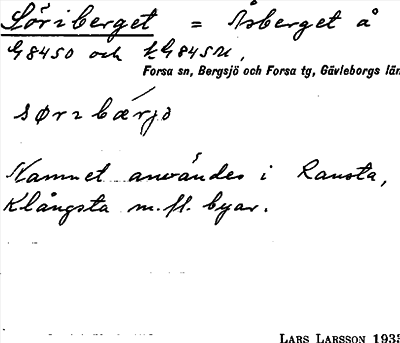 Söriberget = Åsberget å
G8450 och kG845u,
Forsa sn, Bergsjö och Forsa tg, Gävleborgs län
sørı bærjə
Namnet användes i Ransta,
Klångsta m.fl. byar.
LARS LARSSON 1935